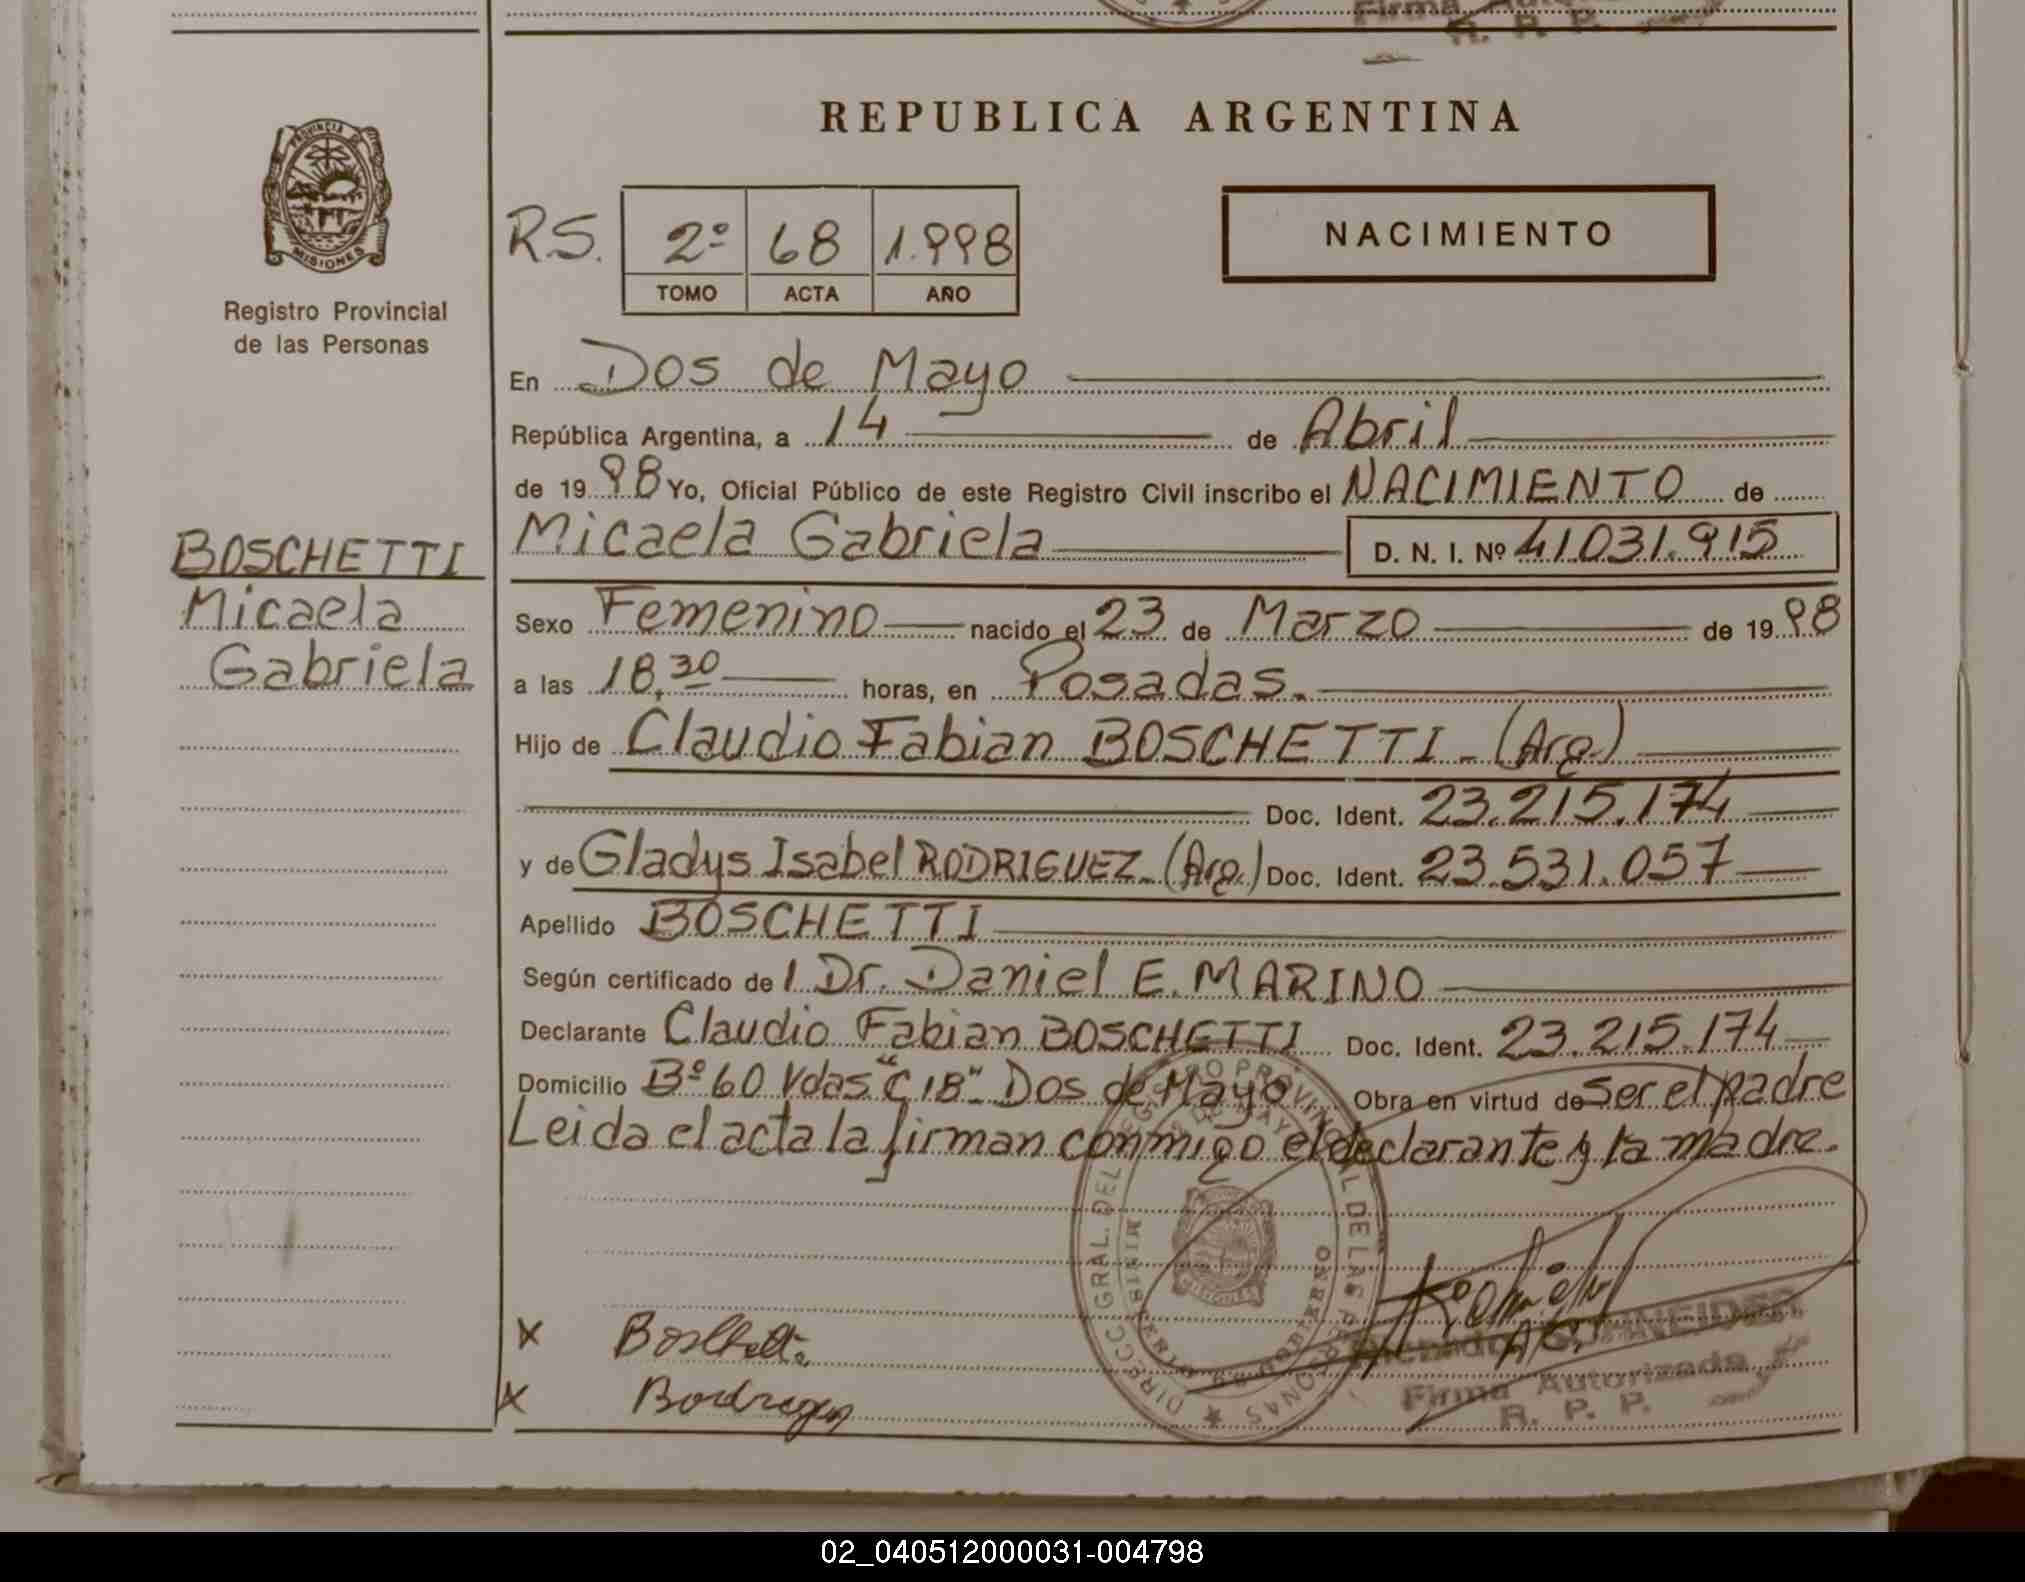 Firma
R. R. P.
PROVINCIA DE
MISIONES
Registro Provincial
de las Personas
BOSCHETTI
Micaela
Gabriela
REPUBLICA ARGENTINA
R.S. 2º 68 1.998
TOMO ACTA AÑO
NACIMIENTO
En Dos de Mayo
República Argentina, a 14 de Abril
de 1998 Yo, Oficial Público de este Registro Civil inscribo el NACIMIENTO de
Micaela Gabriela D. N. I. Nº 41031.915
Sexo Femenino nacido el 23 de Marzo de 1998
a las 18,30 horas, en Posadas.
Hijo de Claudio Fabian BOSCHETTI - (Arg.)
Doc. Ident. 23.215.174
y de Gladys Isabel RODRIGUEZ - (Arg.) Doc. Ident. 23.531.057
Apellido BOSCHETTI
Según certificado de l Dr. Daniel E. MARINO
Declarante Claudio Fabian BOSCHETTI Doc. Ident. 23.215.174
Domicilio Bº 60 Vdas "C 18" Dos de Mayo Obra en virtud de ser el padre
Leida el acta la firman conmigo el declarante y la madre.
DIRECC. GRAL. DEL REGISTRO PROVINCIAL DE LAS PERSONAS
X Boschetti
SCHNEIDER
Firma Autorizada
X
R. P. P.
02_040512000031-004798